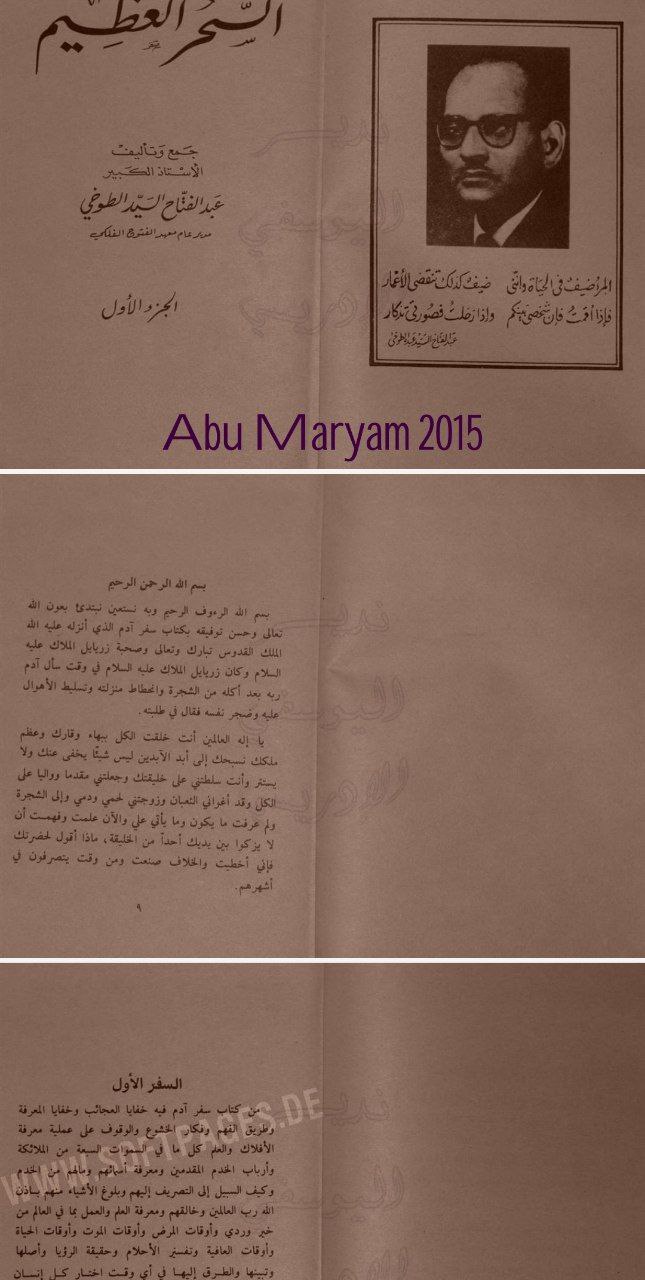 السحر العظيم
جمع وتأليف
الأستاذ الكبير
عبد الفتاح السيد الطوخي
مدير عام معهد الفتوح الفلكي
الجزء الأول
المرء ضيف في الحياة وانني ضيف كذلك تنقضي الأعمار
فإذا أقمت فإن شخصي بينكم وإذا رحلت فصورتي تذكار
عبد الفتاح السيد عبده الطوخي
Abu Maryam 2015
نديــر
اليوسفي
الادريسي
بسم الله الرحمن الرحيم
بسم الله الرءوف الرحيم وبه نستعين نبتدئ بعون الله
تعالى وحسن توفيقه بكتاب سفر آدم الذي أنزله عليه الله
الملك القدوس تبارك وتعالى وصحبة زريايل الملاك عليه
السلام وكان زريايل الملاك عليه السلام في وقت سأل آدم
ربه بعد أكله من الشجرة وانحطاط منزلته وتسليط الأهوال
عليه وضجر نفسه فقال في طلبته.
يا إله العالمين أنت خلقت الكل ببهاء وقارك وعظم
ملكك نسبحك إلى أبد الآبدين ليس شيئًا يخفى عنك ولا
يستتر وأنت سلطتني على خليقتك وجعلتني مقدما وواليا على
الكل وقد أغراني الثعبان وزوجتني لحمي ودمي وإلى الشجرة
ولم عرفت ما يكون وما يأتي علي والآن علمت وفهمت أن
لا يزكوا بين يديك أحداً من الخليقة، ماذا أقول لحضرتك
فإني أخطيت والخلاف صنعت ومن وقت يتصرفون في
أشهرهم.
٩
نديــر
اليوسفي
الادريسي
السفر الأول
من كتاب سفر آدم فيه خفايا العجائب وخفايا المعرفة
وطريق الفهم وفكار الخشوع والوقوف على عملية معرفة
الأفلاك والعلم كل ما في السموات السبعة من الملائكة
وأرباب الخدم المقدمين ومعرفة أسمائهم ومالهم من الخدم
وكيف السبيل إلى التصريف إليهم وبلوغ الأشياء منهم بإذن
الله رب العالمين وخالقهم ومعرفة العلم والعمل بما في العالم من
خير وردي وأوقات المرض وأوقات الموت وأوقات الحياة
وأوقات العافية وتفسير الأحلام وحقيقة الرؤيا وأصلها
وتبينها والطرق إليها في أي وقت اختار كل إنسان
WWW.SOFTPAGES.DE
نديــر
اليوسفي
الادريسي